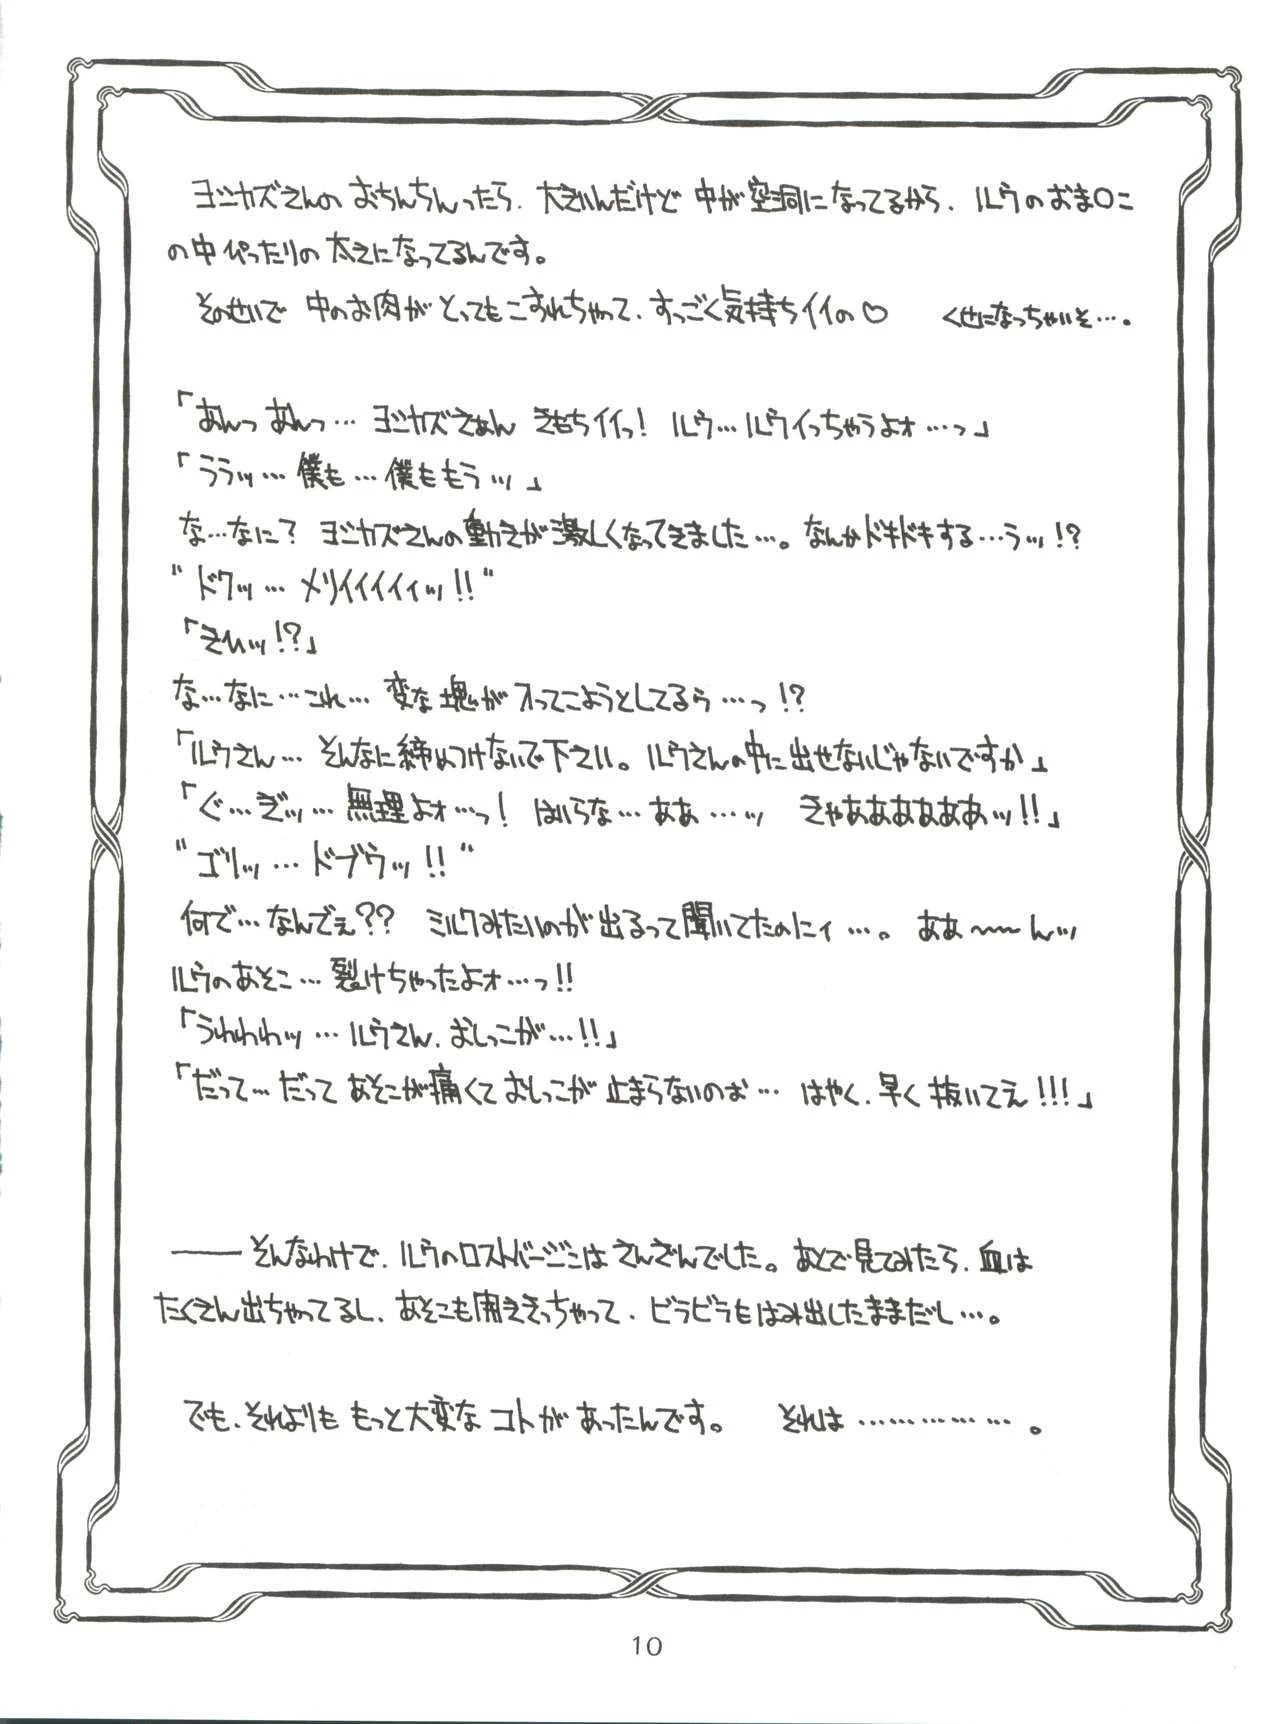 ヨシカズさんの おちんちんったら、大きいんだけど 中が空洞になってるから、ルウのおま○こ
の中ぴったりの 太さになってるんです。
そのせいで 中のお肉が とってもこすれちゃって、すっごく気持ちイイの♡ くせになっちゃいそ…。
「あんっ あんっ… ヨシカズさぁん きもちイイっ! ルウ…ルウイっちゃうよォ…っ」
「ううッ… 僕も… 僕ももうッ」
な…なに? ヨシカズさんの動きが激しくなってきました…。なんかドキドキする…うッ!?
"ドクッ… メリイイイイィッ!!"
「きひッ!?」
な…なに…これ… 変な塊が 入ってこようとしてるぅ…っ!?
「ルウさん… そんなに締めつけないで下さい。ルウさんの中に出せないじゃないですか」
「ぐ…ぎッ… 無理よォ…っ! はいらな… ああ…ッ きゃああああああッ!!」
"ゴリッ… ドブウッ!!"
何で…なんでぇ?? ミルクみたいのが出るって聞いてたのにィ…。 ああ〜〜んッ
ルウのあそこ… 裂けちゃったよォ…っ!!
「うわわわッ… ルウさん、おしっこが…!!」
「だって… だって あそこが痛くて おしっこが 止まらないのぉ… はやく、早く 抜いてえ!!!」
――そんなわけで、ルウのロストバージンは さんざんでした。あとで見てみたら、血は
たくさん出ちゃってるし、あそこも開ききっちゃって、ビラビラもはみ出したままだし…。
でも、それよりも もっと大変な コトが あったんです。 それは ……………。
10